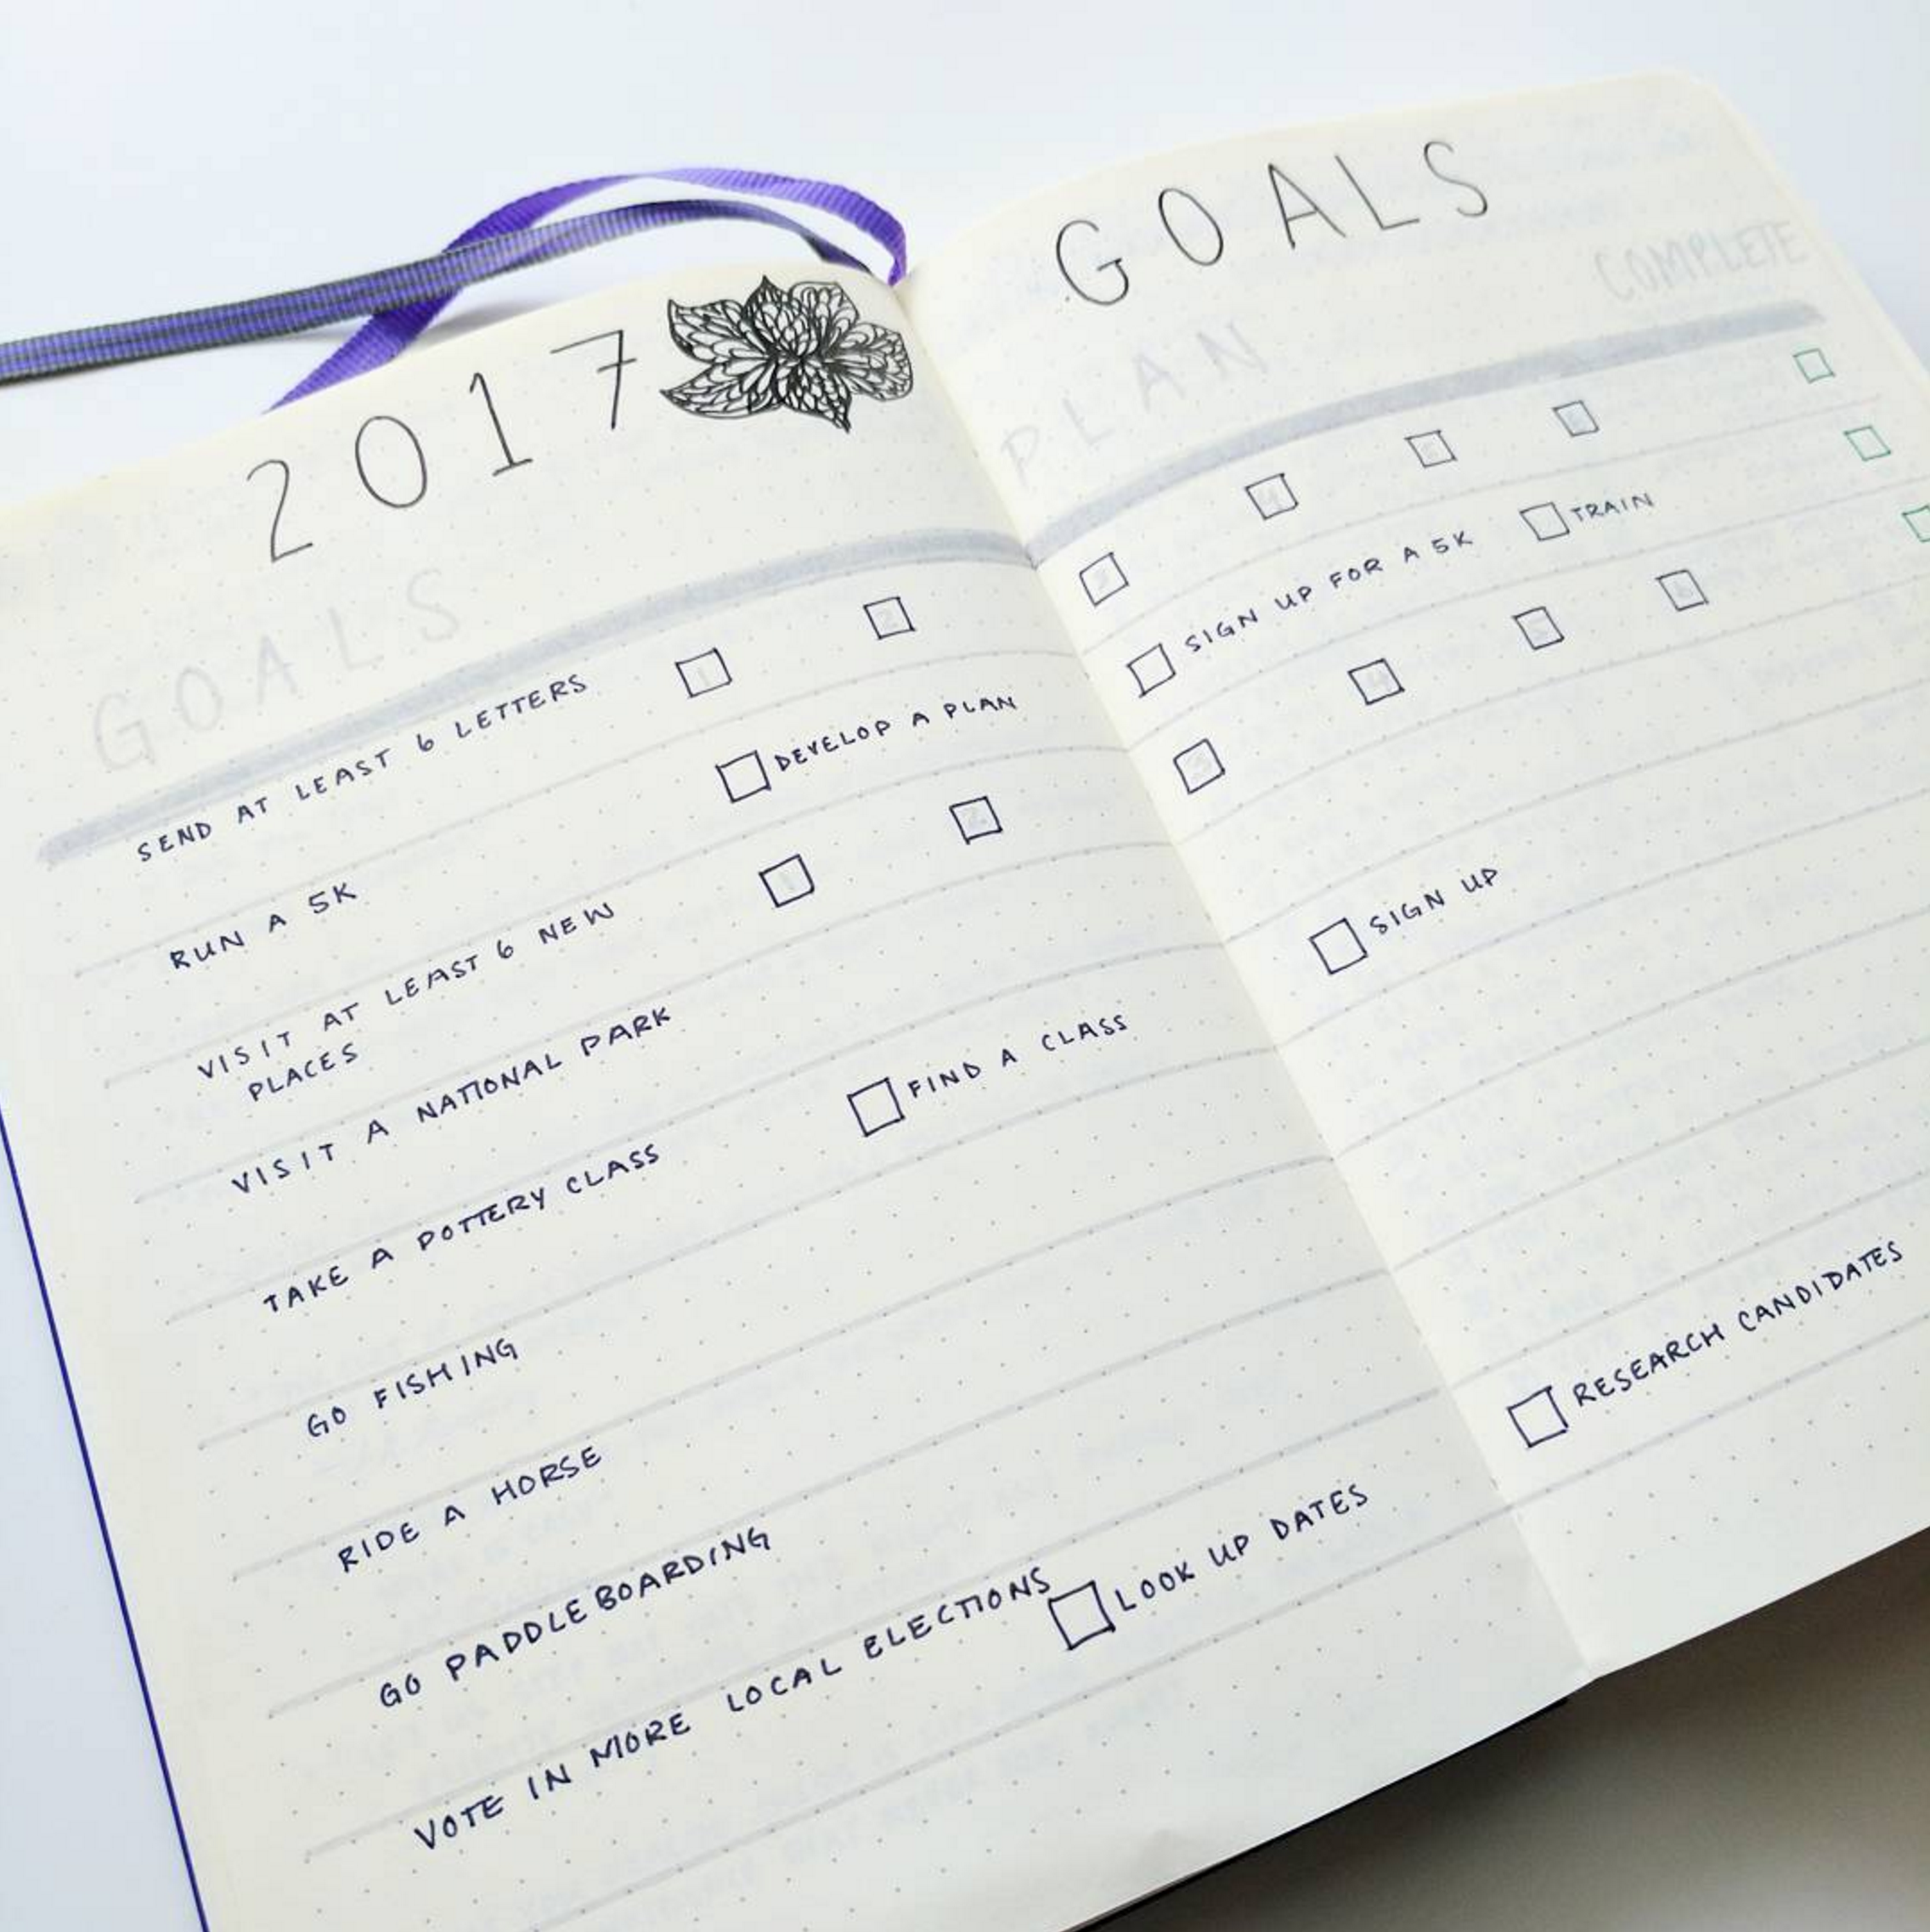 2017 GOALS
GOALS PLAN COMPLETE
SEND AT LEAST 6 LETTERS 1 2 3 4 5 6
RUN A 5K DEVELOP A PLAN SIGN UP FOR A 5K TRAIN
VISIT AT LEAST 6 NEW 1 2 3 4 5 6
PLACES
VISIT A NATIONAL PARK
TAKE A POTTERY CLASS FIND A CLASS SIGN UP
GO FISHING
RIDE A HORSE
GO PADDLEBOARDING
VOTE IN MORE LOCAL ELECTIONS LOOK UP DATES RESEARCH CANDIDATES